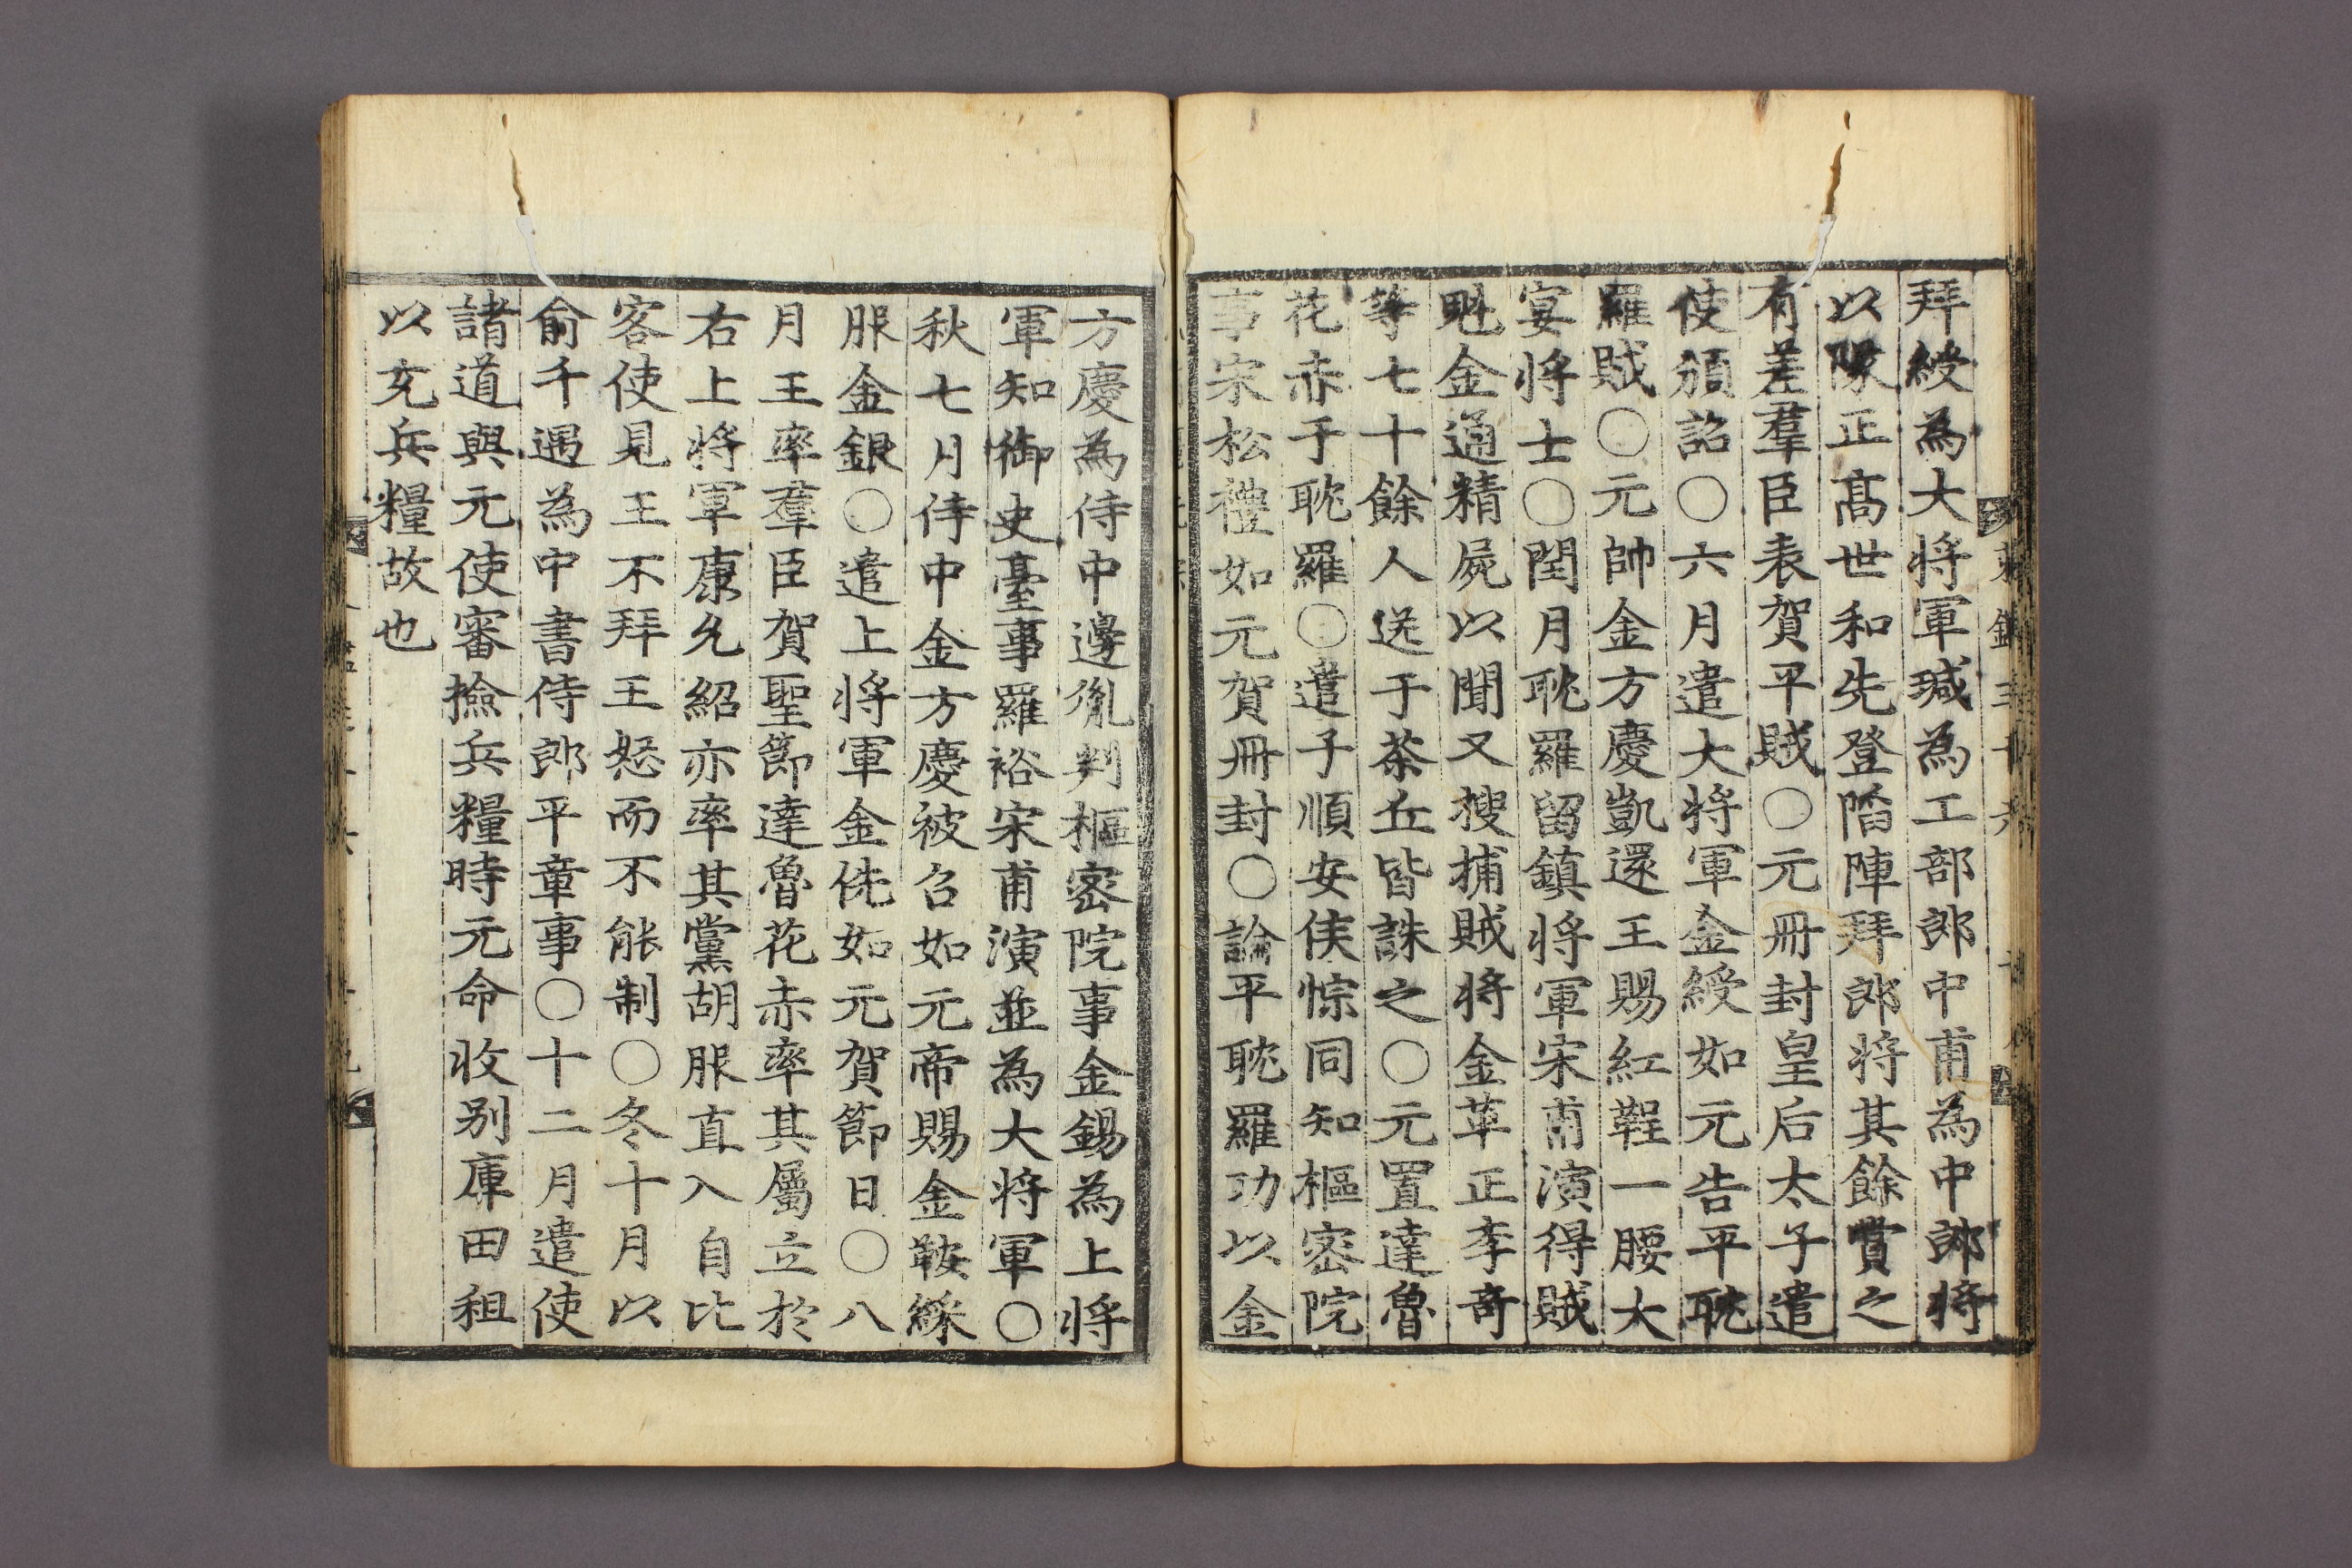 拜綬為大将軍瑊為工部郎中甫為中郎将
以隊正髙世和先登䧟陣拜郎将其餘賞之
有差羣臣表賀平賊〇元冊封皇后太子遣
使頒詔〇六月遣大将軍金綬如元告平耽
羅賊〇元帥金方慶凱還王賜紅鞓一腰大
宴将士〇閏月耽羅留鎮将軍宋甫演得賊
魁金通精屍以聞又搜捕賊将金革正李奇
等七十餘人送于茶丘皆誅之〇元置達魯
花赤于耽羅〇遣子順安侯悰同知樞密院
事宋松禮如元賀冊封〇論平耽羅功以金
方慶為侍中邊胤判樞密院事金錫為上将
軍知御史臺事羅裕宋甫演並為大将軍〇
秋七月侍中金方慶被召如元帝賜金鞍綵
服金銀〇遣上将軍金侁如元賀節日〇八
月王率羣臣賀聖節達魯花赤率其屬立於
右上将軍康允紹亦率其黨胡服直入自比
客使見王不拜王怒而不能制〇冬十月以
俞千遇為中書侍郎平章事〇十二月遣使
諸道與元使審撿兵糧時元命收别庫田租
以充兵糧故也